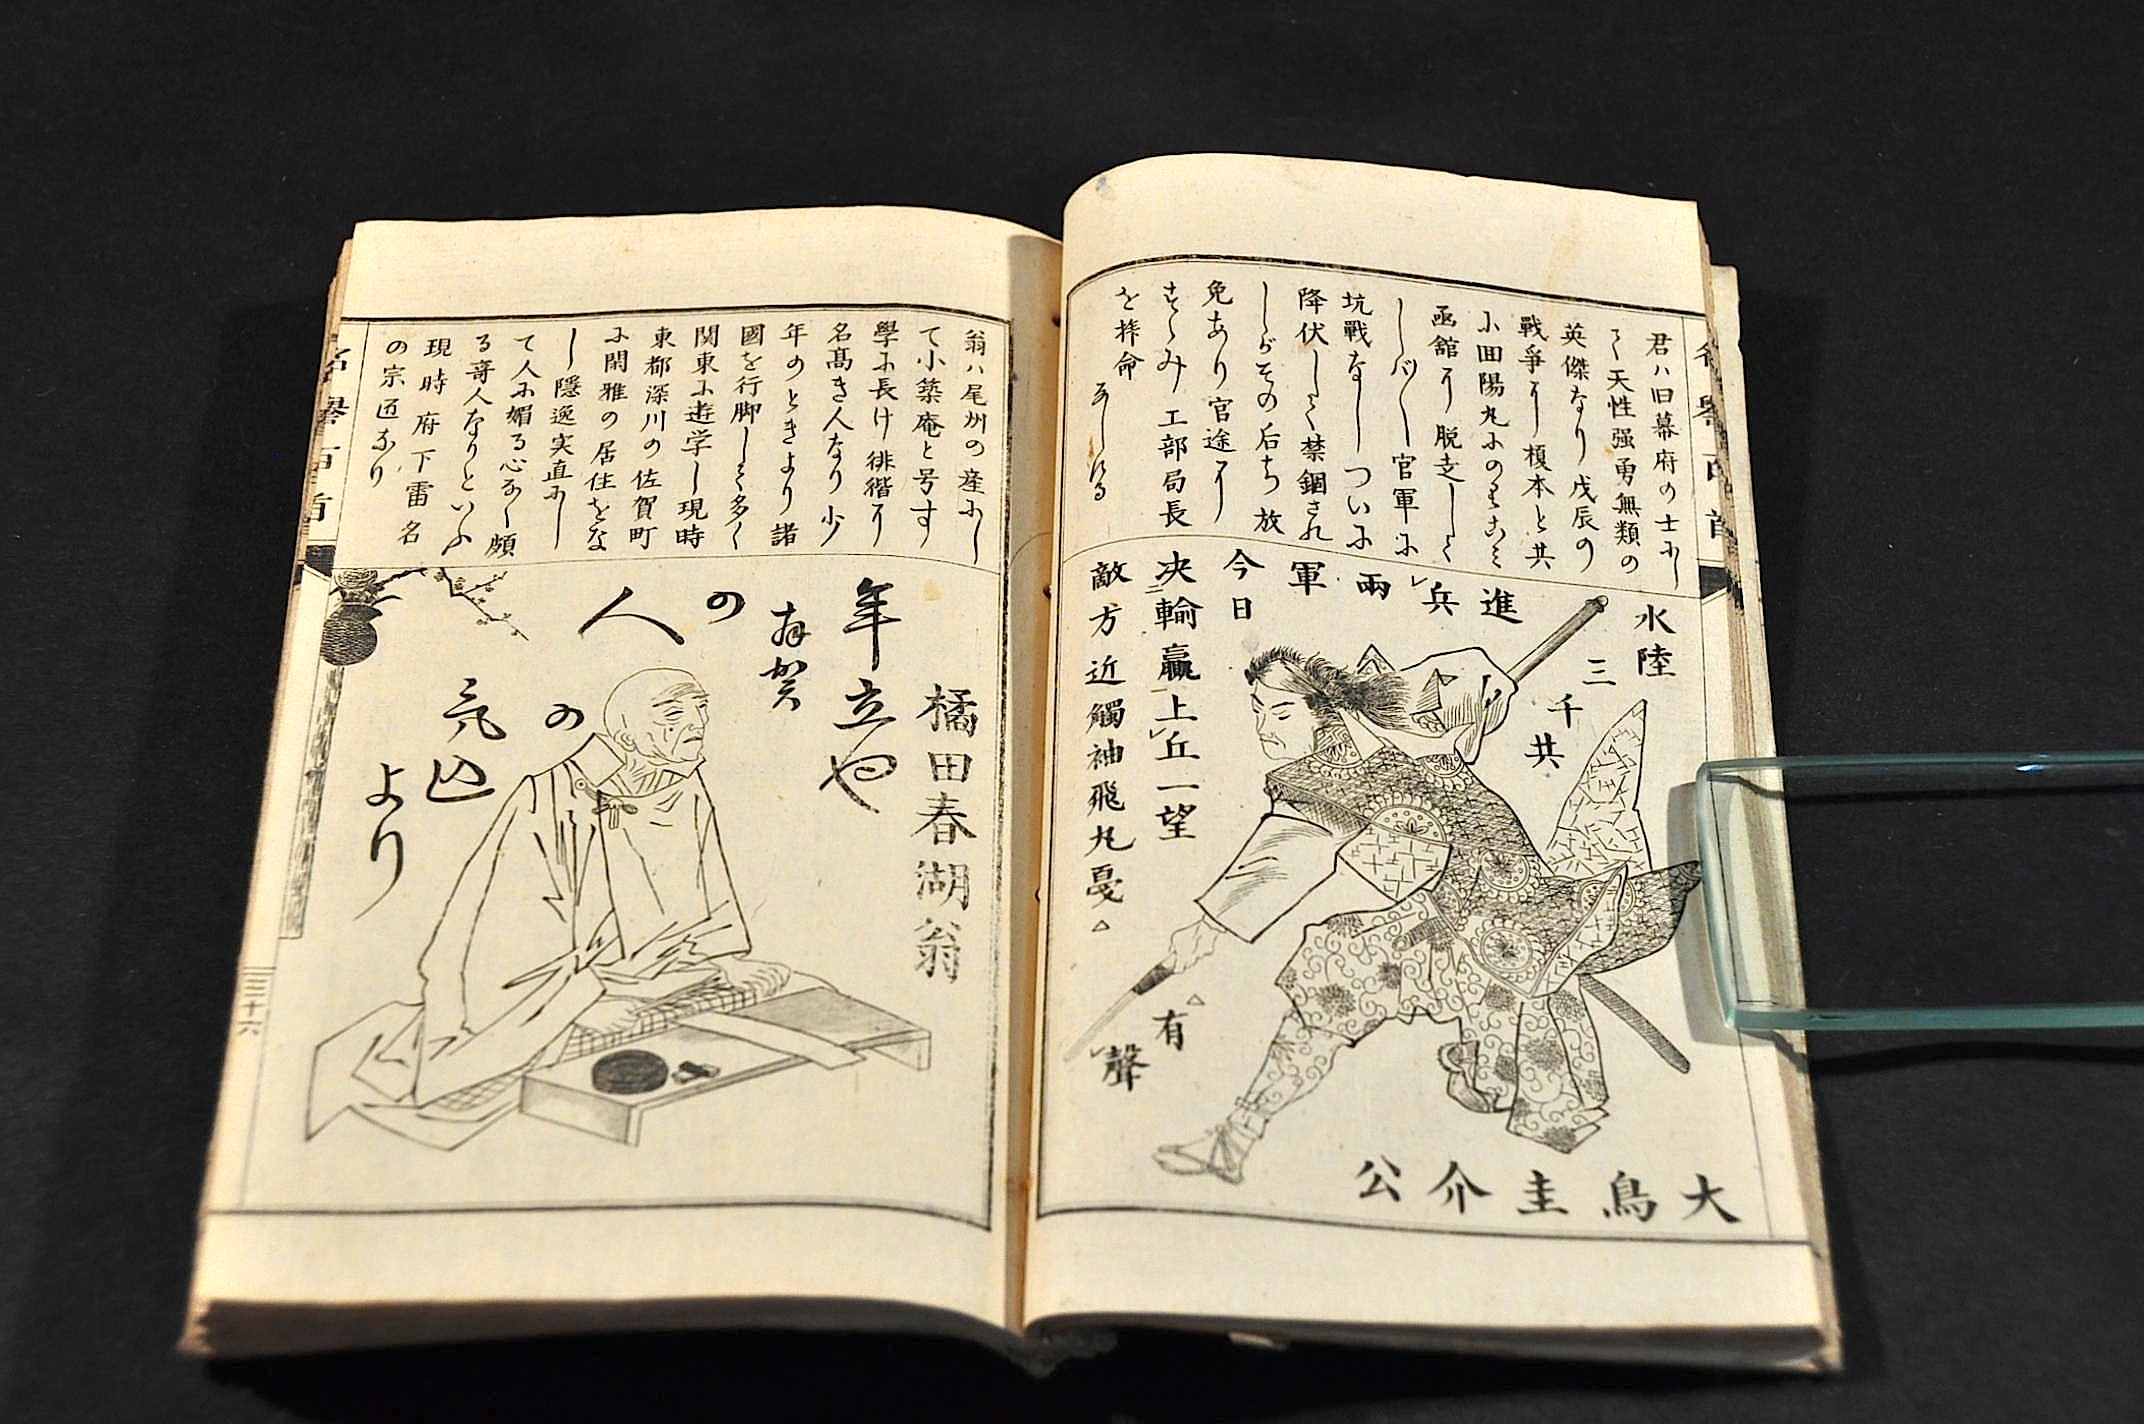 君ハ旧幕府の士にし
て天性强勇無類の
英傑なり戊辰の
戰爭に榎本と共
に回陽丸に
函舘に脱走して
官軍に
坑戰なしついに
降伏して禁錮され
しがその后ち放
免あり官途に
すゝみ工部局長
を拝命
水陸
三
千
共
進
兵
兩
軍
今日
决輸贏上丘一望
敵方近觸袖飛丸戞
有
聲
大鳥圭介公
翁ハ尾州の産にし
て小築庵と号す
學に長け俳諧に
名高き人なり少
年のときより諸
國を行脚して多く
関東に遊学し現時
東都深川の佐賀町
に閑雅の居住をな
し隠逸実直にし
て人に媚る心なく頗
る奇人なりといふ
現時府下雷名
の宗匠なり
橘田春湖翁
年立や
の
人
の
气込
より
三十六